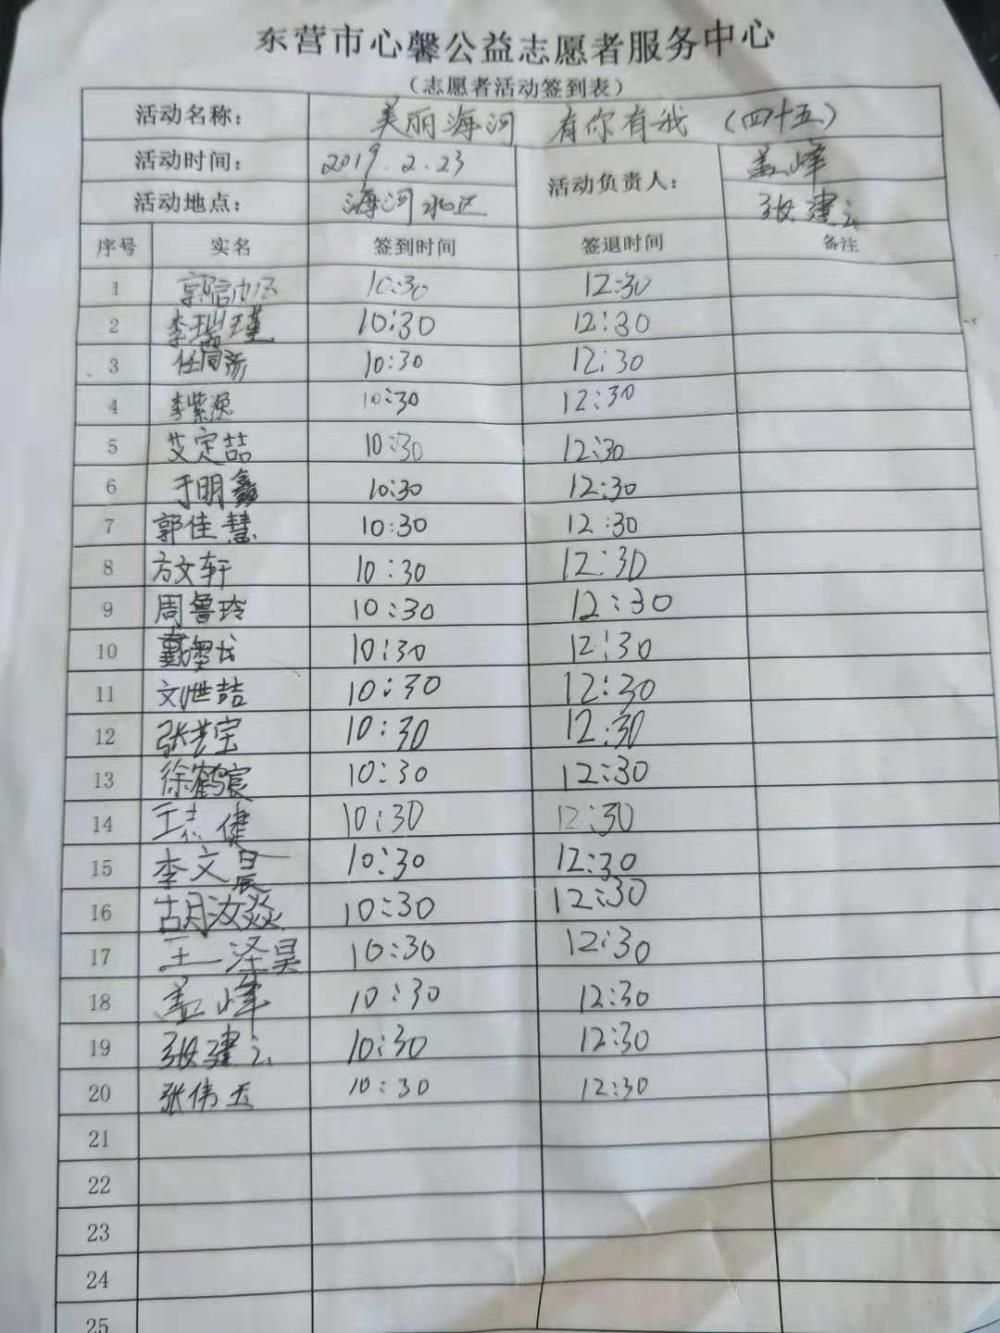 东营市心馨公益志愿者服务中心
（志愿者活动签到表）
活动名称： 美丽海河 有你有我 （四十五）
活动时间： 2019.2.23 活动负责人： 盖峰
活动地点： 海河 张建云
序号 实名 签到时间 签退时间 备注
1 10:30 12:30
2 李瑞瑾 10:30 12:30
3 10:30 12:30
4 李紫源 10:30 12:30
5 艾定喆 10:30 12:30
6 于明鑫 10:30 12:30
7 郭佳慧 10:30 12:30
8 方文轩 10:30 12:30
9 周鲁玲 10:30 12:30
10 10:30 12:30
11 刘世喆 10:30 12:30
12 张芸宝 10:30 12:30
13 徐鹤宸 10:30 12:30
14 王志健 10:30 12:30
15 李文晨 10:30 12:30
16 胡汝焱 10:30 12:30
17 王一泽昊 10:30 12:30
18 盖峰 10:30 12:30
19 张建云 10:30 12:30
20 张伟 10:30 12:30
21
22
23
24
25